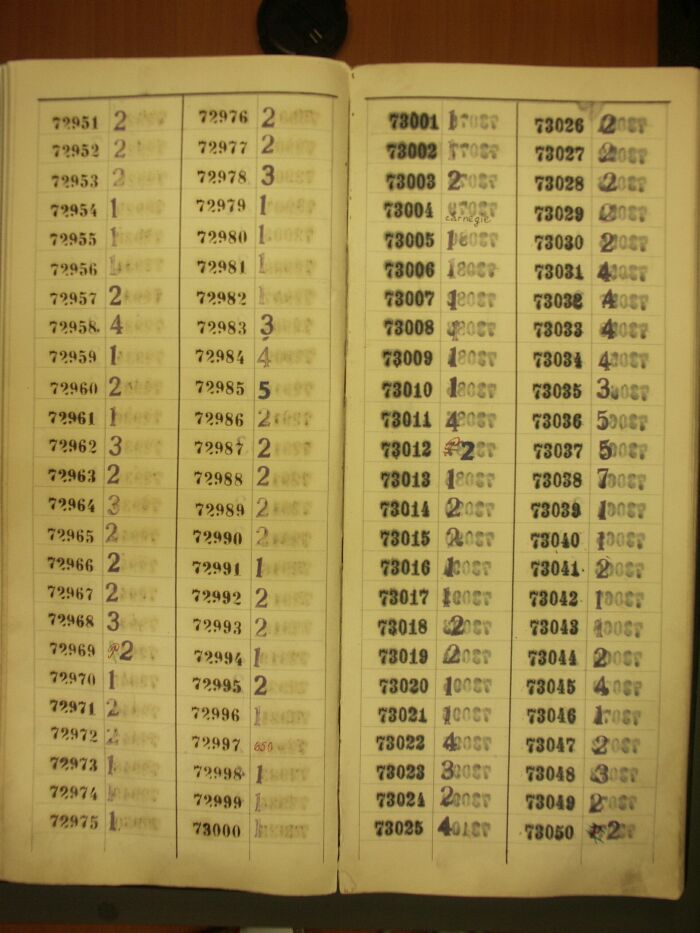 72951 2
72952 2
72953 2
72954 1
72955 1
72956 1
72957 2
72958 4
72959 1
72960 2
72961 1
72962 3
72963 2
72964 3
72965 2
72966 2
72967 2
72968 3
72969 2
72970 1
72971 2
72972 2
72973 1
72974 1
72975 1
72976 2
72977 2
72978 3
72979 1
72980 1
72981 1
72982 1
72983 3
72984 4
72985 5
72986 2
72987 2
72988 2
72989 2
72990 2
72991 1
72992 2
72993 2
72994 1
72995 2
72996 1
72997 650
72998 1
72999 1
73000 1
73001 1
73002 1
73003 2
73004 carnegie
73005 1
73006 1
73007 1
73008 1
73009 1
73010 1
73011 4
73012 2
73013 1
73014 2
73015 2
73016 1
73017 1
73018 2
73019 2
73020 1
73021 1
73022 4
73023 3
73024 2
73025 4
73026 2
73027 2
73028 2
73029 2
73030 2
73031 4
73032 4
73033 4
73034 4
73035 3
73036 5
73037 5
73038 7
73039 1
73040 1
73041 2
73042 1
73043 1
73044 2
73045 4
73046 1
73047 2
73048 3
73049 2
73050 2